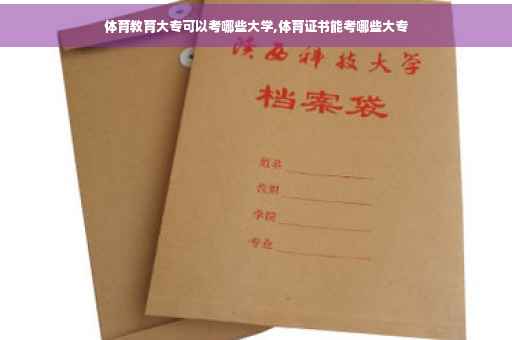 体育教育大专可以考哪些大学,体育证书能考哪些大专
陕西科技大学
档案袋
姓名
学院
专业